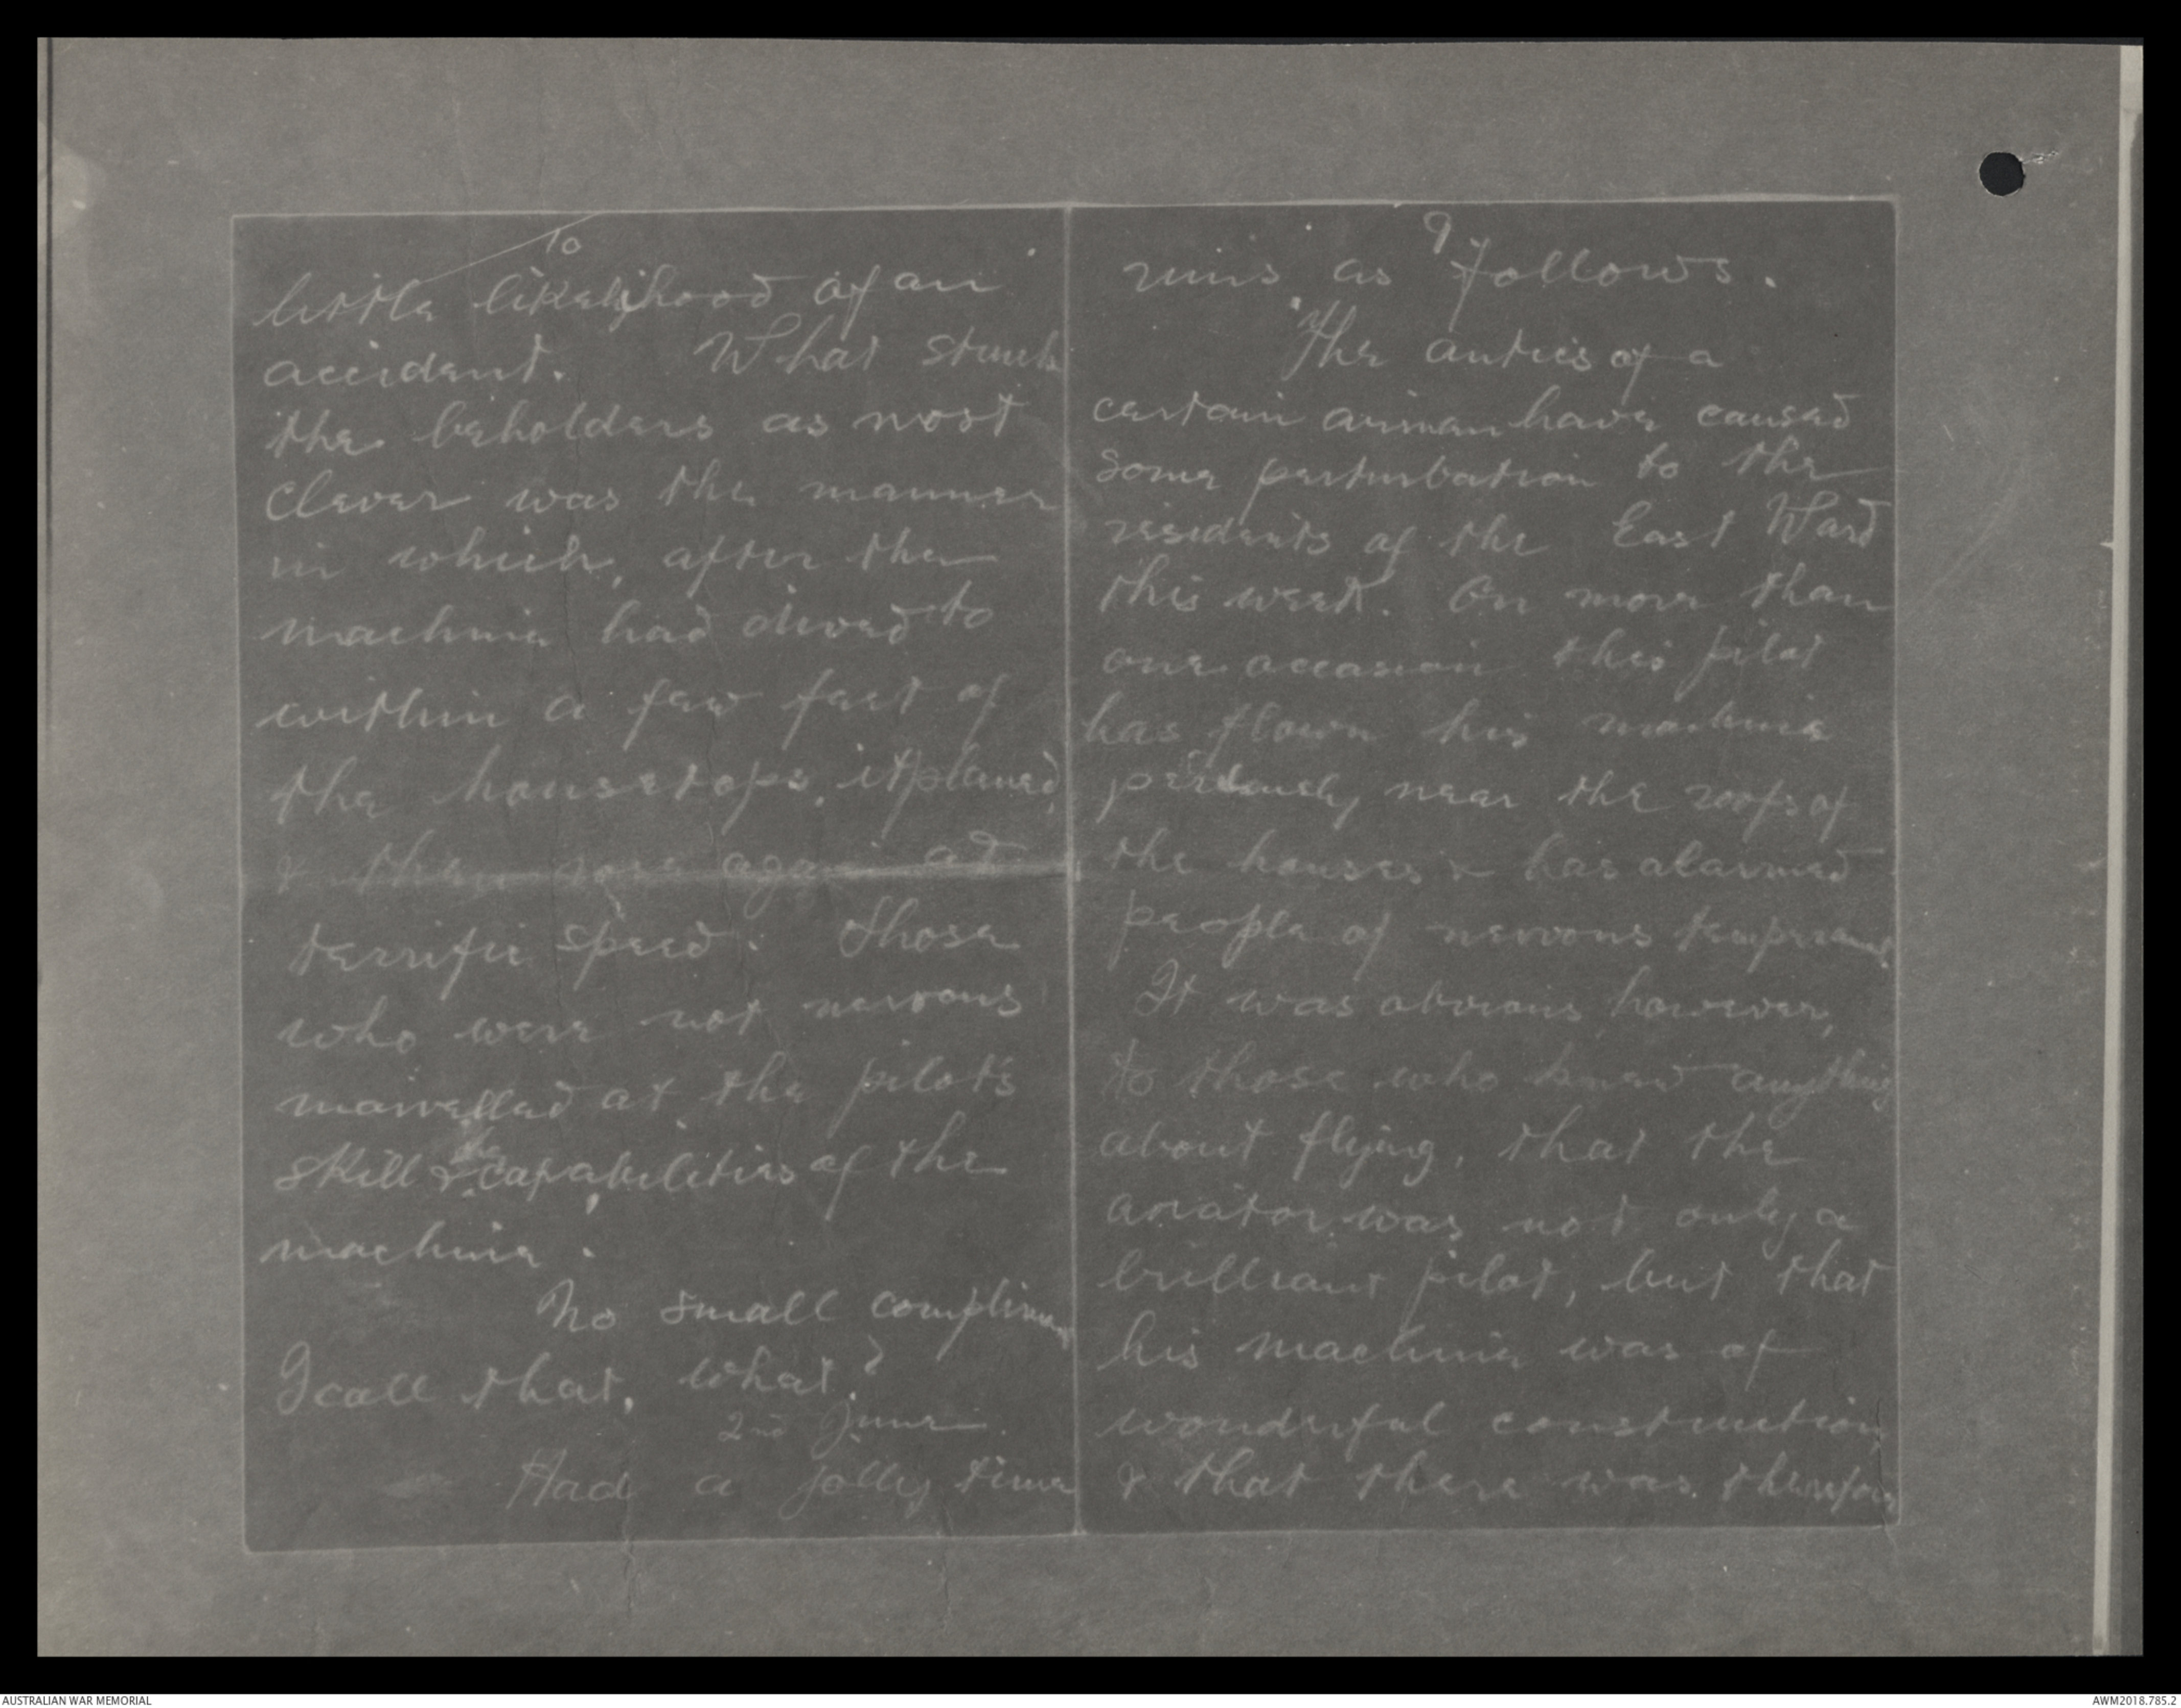 9
runs as follows.
"The antics of a
certain airman have caused
some perturbation to the
residents of the East Ward
this week. On more than
one occasion this pilot
has flown his machine
perilously near the roofs of
the houses & has alarmed
people of nervous temperament
It was obvious however,
to those who knew anything
about flying, that the
aviator was not only a
brilliant pilot, but that
his machine was of
wonderful construction
& that there was therefore
10
little likelihood of an
accident. What struck
the beholders as most
clever was the manner
in which, after the
machine had dived to
within a few feet of
the housetops, it planed,
& then rose again at
terrific speed. Those
who were not nervous
marvelled at the pilot's
skill & the capabilities of the
machine.
No small compliment
I call that, what?
2nd June.
Had a jolly time
AUSTRALIAN WAR MEMORIAL
AWM2018.785.2